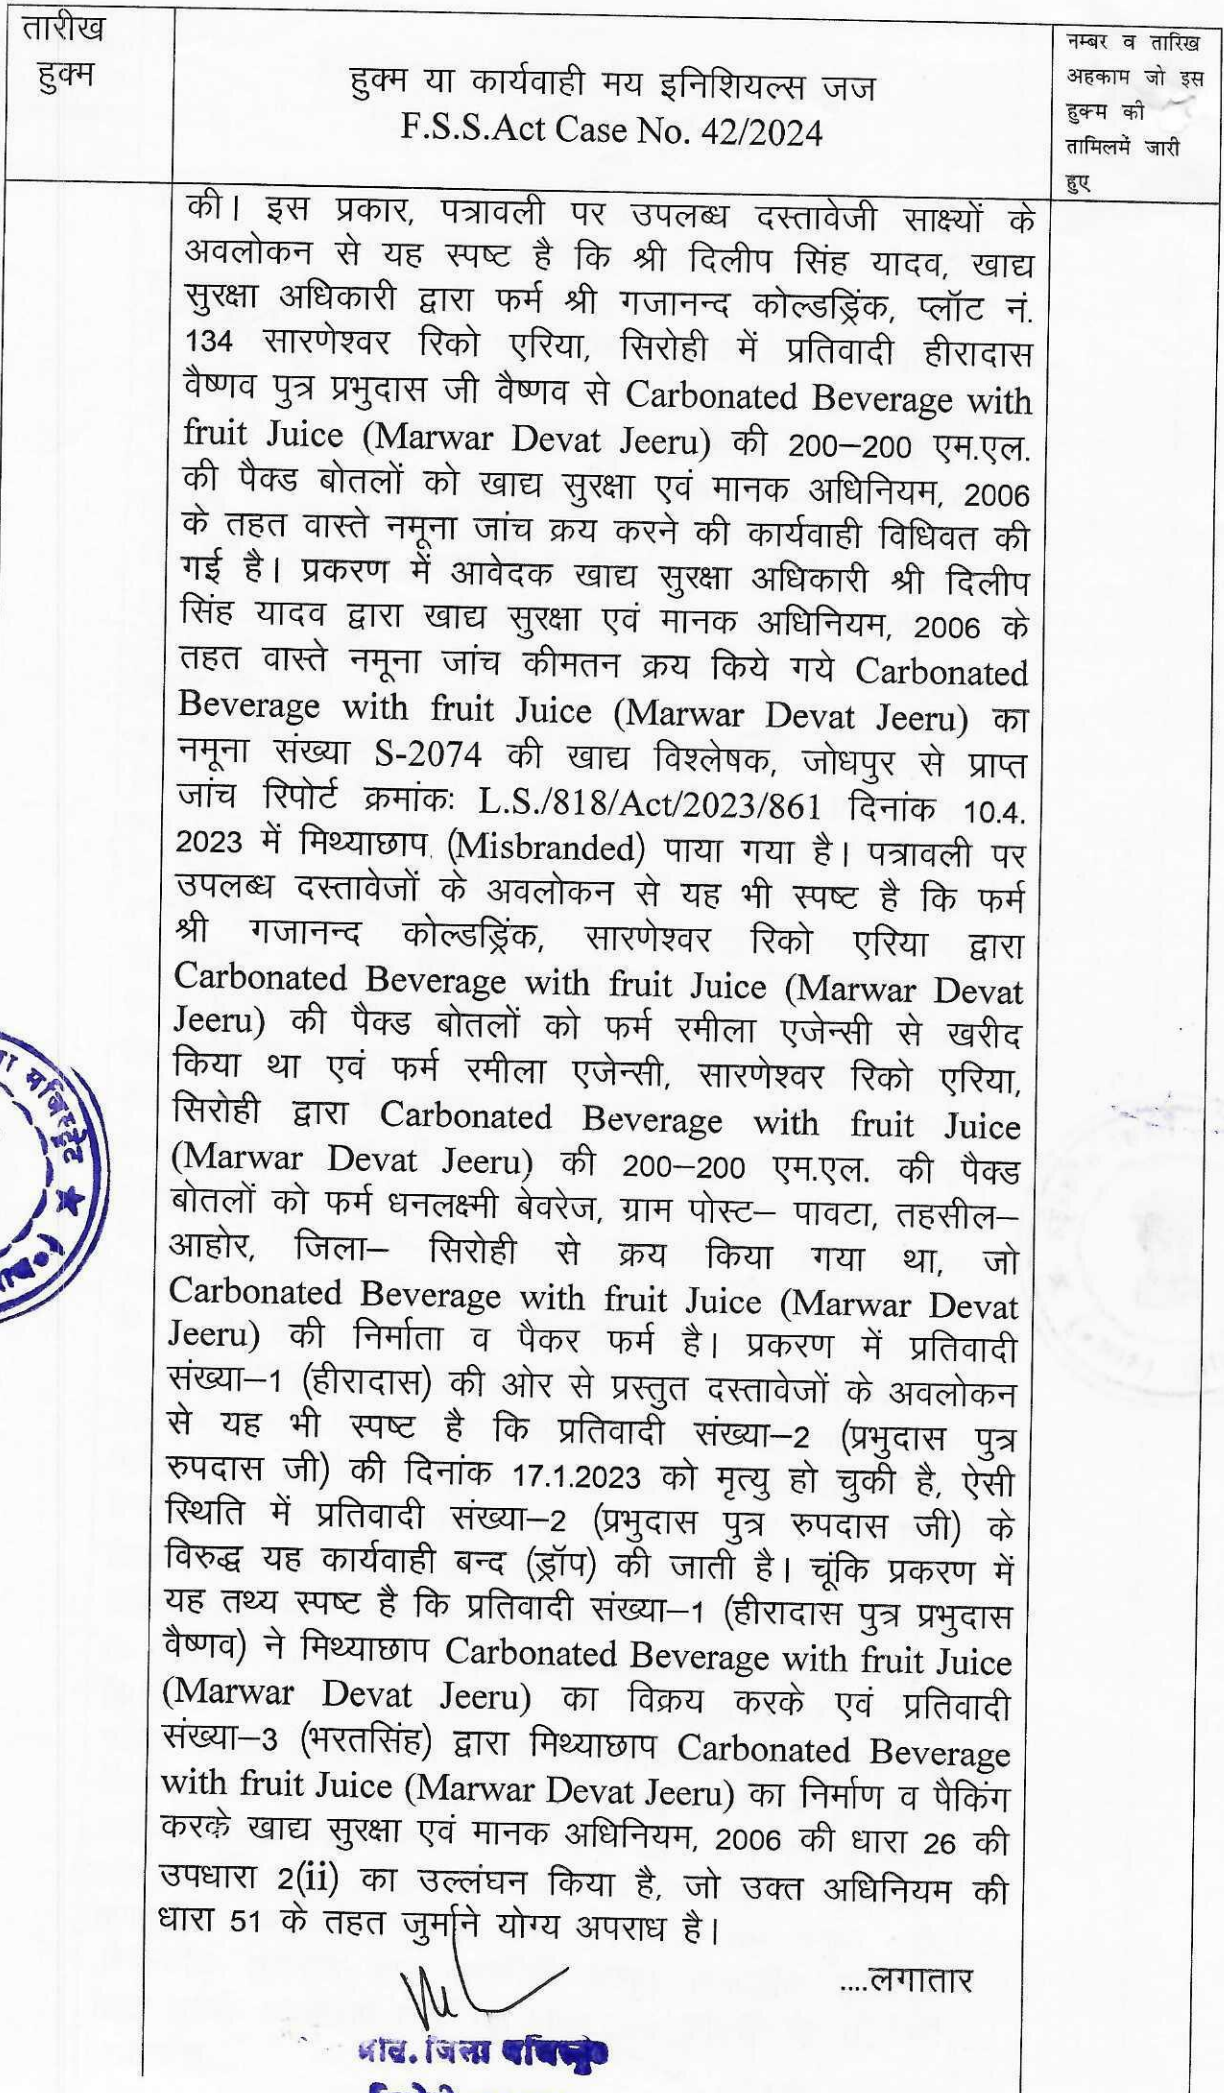 तारीख
हुक्म
हुक्म या कार्यवाही मय इनिशियल्स जज
F.S.S.Act Case No. 42/2024
नम्बर व तारिख
अहकाम जो इस
हुक्म की
तामिलमें जारी
हुए
की। इस प्रकार, पत्रावली पर उपलब्ध दस्तावेजी साक्ष्यों के
अवलोकन से यह स्पष्ट है कि श्री दिलीप सिंह यादव, खाद्य
सुरक्षा अधिकारी द्वारा फर्म श्री गजानन्द कोल्डड्रिंक, प्लॉट नं.
134 सारणेश्वर रिको एरिया, सिरोही में प्रतिवादी हीरादास
वैष्णव पुत्र प्रभुदास जी वैष्णव से Carbonated Beverage with
fruit Juice (Marwar Devat Jeeru) की 200–200 एम.एल.
की पैक्ड बोतलों को खाद्य सुरक्षा एवं मानक अधिनियम, 2006
के तहत वास्ते नमूना जांच क्रय करने की कार्यवाही विधिवत की
गई है। प्रकरण में आवेदक खाद्य सुरक्षा अधिकारी श्री दिलीप
सिंह यादव द्वारा खाद्य सुरक्षा एवं मानक अधिनियम, 2006 के
तहत वास्ते नमूना जांच कीमतन क्रय किये गये Carbonated
Beverage with fruit Juice (Marwar Devat Jeeru) का
नमूना संख्या S-2074 की खाद्य विश्लेषक, जोधपुर से प्राप्त
जांच रिपोर्ट क्रमांकः L.S./818/Act/2023/861 दिनांक 10.4.
2023 में मिथ्याछाप (Misbranded) पाया गया है। पत्रावली पर
उपलब्ध दस्तावेजों के अवलोकन से यह भी स्पष्ट है कि फर्म
श्री गजानन्द कोल्डड्रिंक, सारणेश्वर रिको एरिया द्वारा
Carbonated Beverage with fruit Juice (Marwar Devat
Jeeru) की पैक्ड बोतलों को फर्म रमीला एजेन्सी से खरीद
किया था एवं फर्म रमीला एजेन्सी, सारणेश्वर रिको एरिया,
सिरोही द्वारा Carbonated Beverage with fruit Juice
(Marwar Devat Jeeru) की 200–200 एम.एल. की पैक्ड
बोतलों को फर्म धनलक्ष्मी बेवरेज, ग्राम पोस्ट– पावटा, तहसील–
आहोर, जिला– सिरोही से क्रय किया गया था, जो
Carbonated Beverage with fruit Juice (Marwar Devat
Jeeru) की निर्माता व पैकर फर्म है। प्रकरण में प्रतिवादी
संख्या–1 (हीरादास) की ओर से प्रस्तुत दस्तावेजों के अवलोकन
से यह भी स्पष्ट है कि प्रतिवादी संख्या–2 (प्रभुदास पुत्र
रुपदास जी) की दिनांक 17.1.2023 को मृत्यु हो चुकी है, ऐसी
स्थिति में प्रतिवादी संख्या–2 (प्रभुदास पुत्र रुपदास जी) के
विरुद्ध यह कार्यवाही बन्द (ड्रॉप) की जाती है। चूंकि प्रकरण में
यह तथ्य स्पष्ट है कि प्रतिवादी संख्या–1 (हीरादास पुत्र प्रभुदास
वैष्णव) ने मिथ्याछाप Carbonated Beverage with fruit Juice
(Marwar Devat Jeeru) का विक्रय करके एवं प्रतिवादी
संख्या–3 (भरतसिंह) द्वारा मिथ्याछाप Carbonated Beverage
with fruit Juice (Marwar Devat Jeeru) का निर्माण व पैकिंग
करके खाद्य सुरक्षा एवं मानक अधिनियम, 2006 की धारा 26 की
उपधारा 2(ii) का उल्लंघन किया है, जो उक्त अधिनियम की
धारा 51 के तहत जुर्माने योग्य अपराध है।
....लगातार
जिला